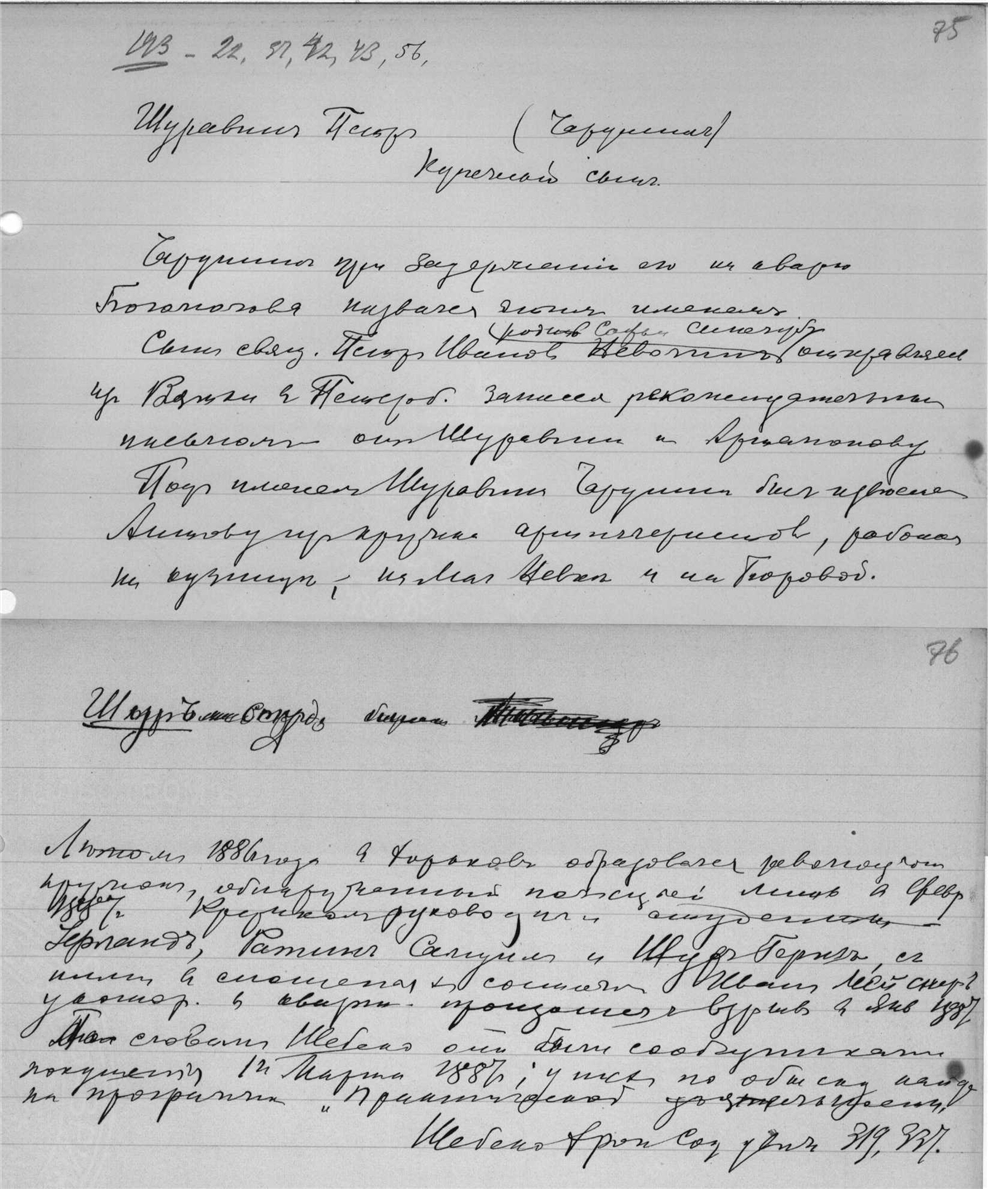 75
193 - 22, 37, 42, 43, 56,
Шуравин Петр (Чарушин)
Купеческий сын.
Чарушин при задержании его на кварт
назвался этим именем.
(родств Софьи
Сын свящ. Петр Иванов Неволин отправляя
из Вятки в Петерб. записся рекомендательным
письмом от Шуравина к Артамонову
Под именем Шуравина Чарушин был известен
из кружка артиллеристов, работал
на кузнице, на Мал Невке и на Боровой.
76
Шуръ студ
Летом 1886 года в Харькове образовался революцион
кружок, обнаруженный полицией лишь в Февр
1887г. Кружком руководили студенты
Ратин Самуил и Шур Герш, с
ними в сношениях состоял Иван Мейснер
у котор. в кварт. произошел взрыв в Янв 1887
По словам Шебеко они были сообщниками
покушения 1го Марта 1887г; у них по обыску найде
на программа "Практической деятельности.
Шебеко Хрон Соц движ 319, 337.